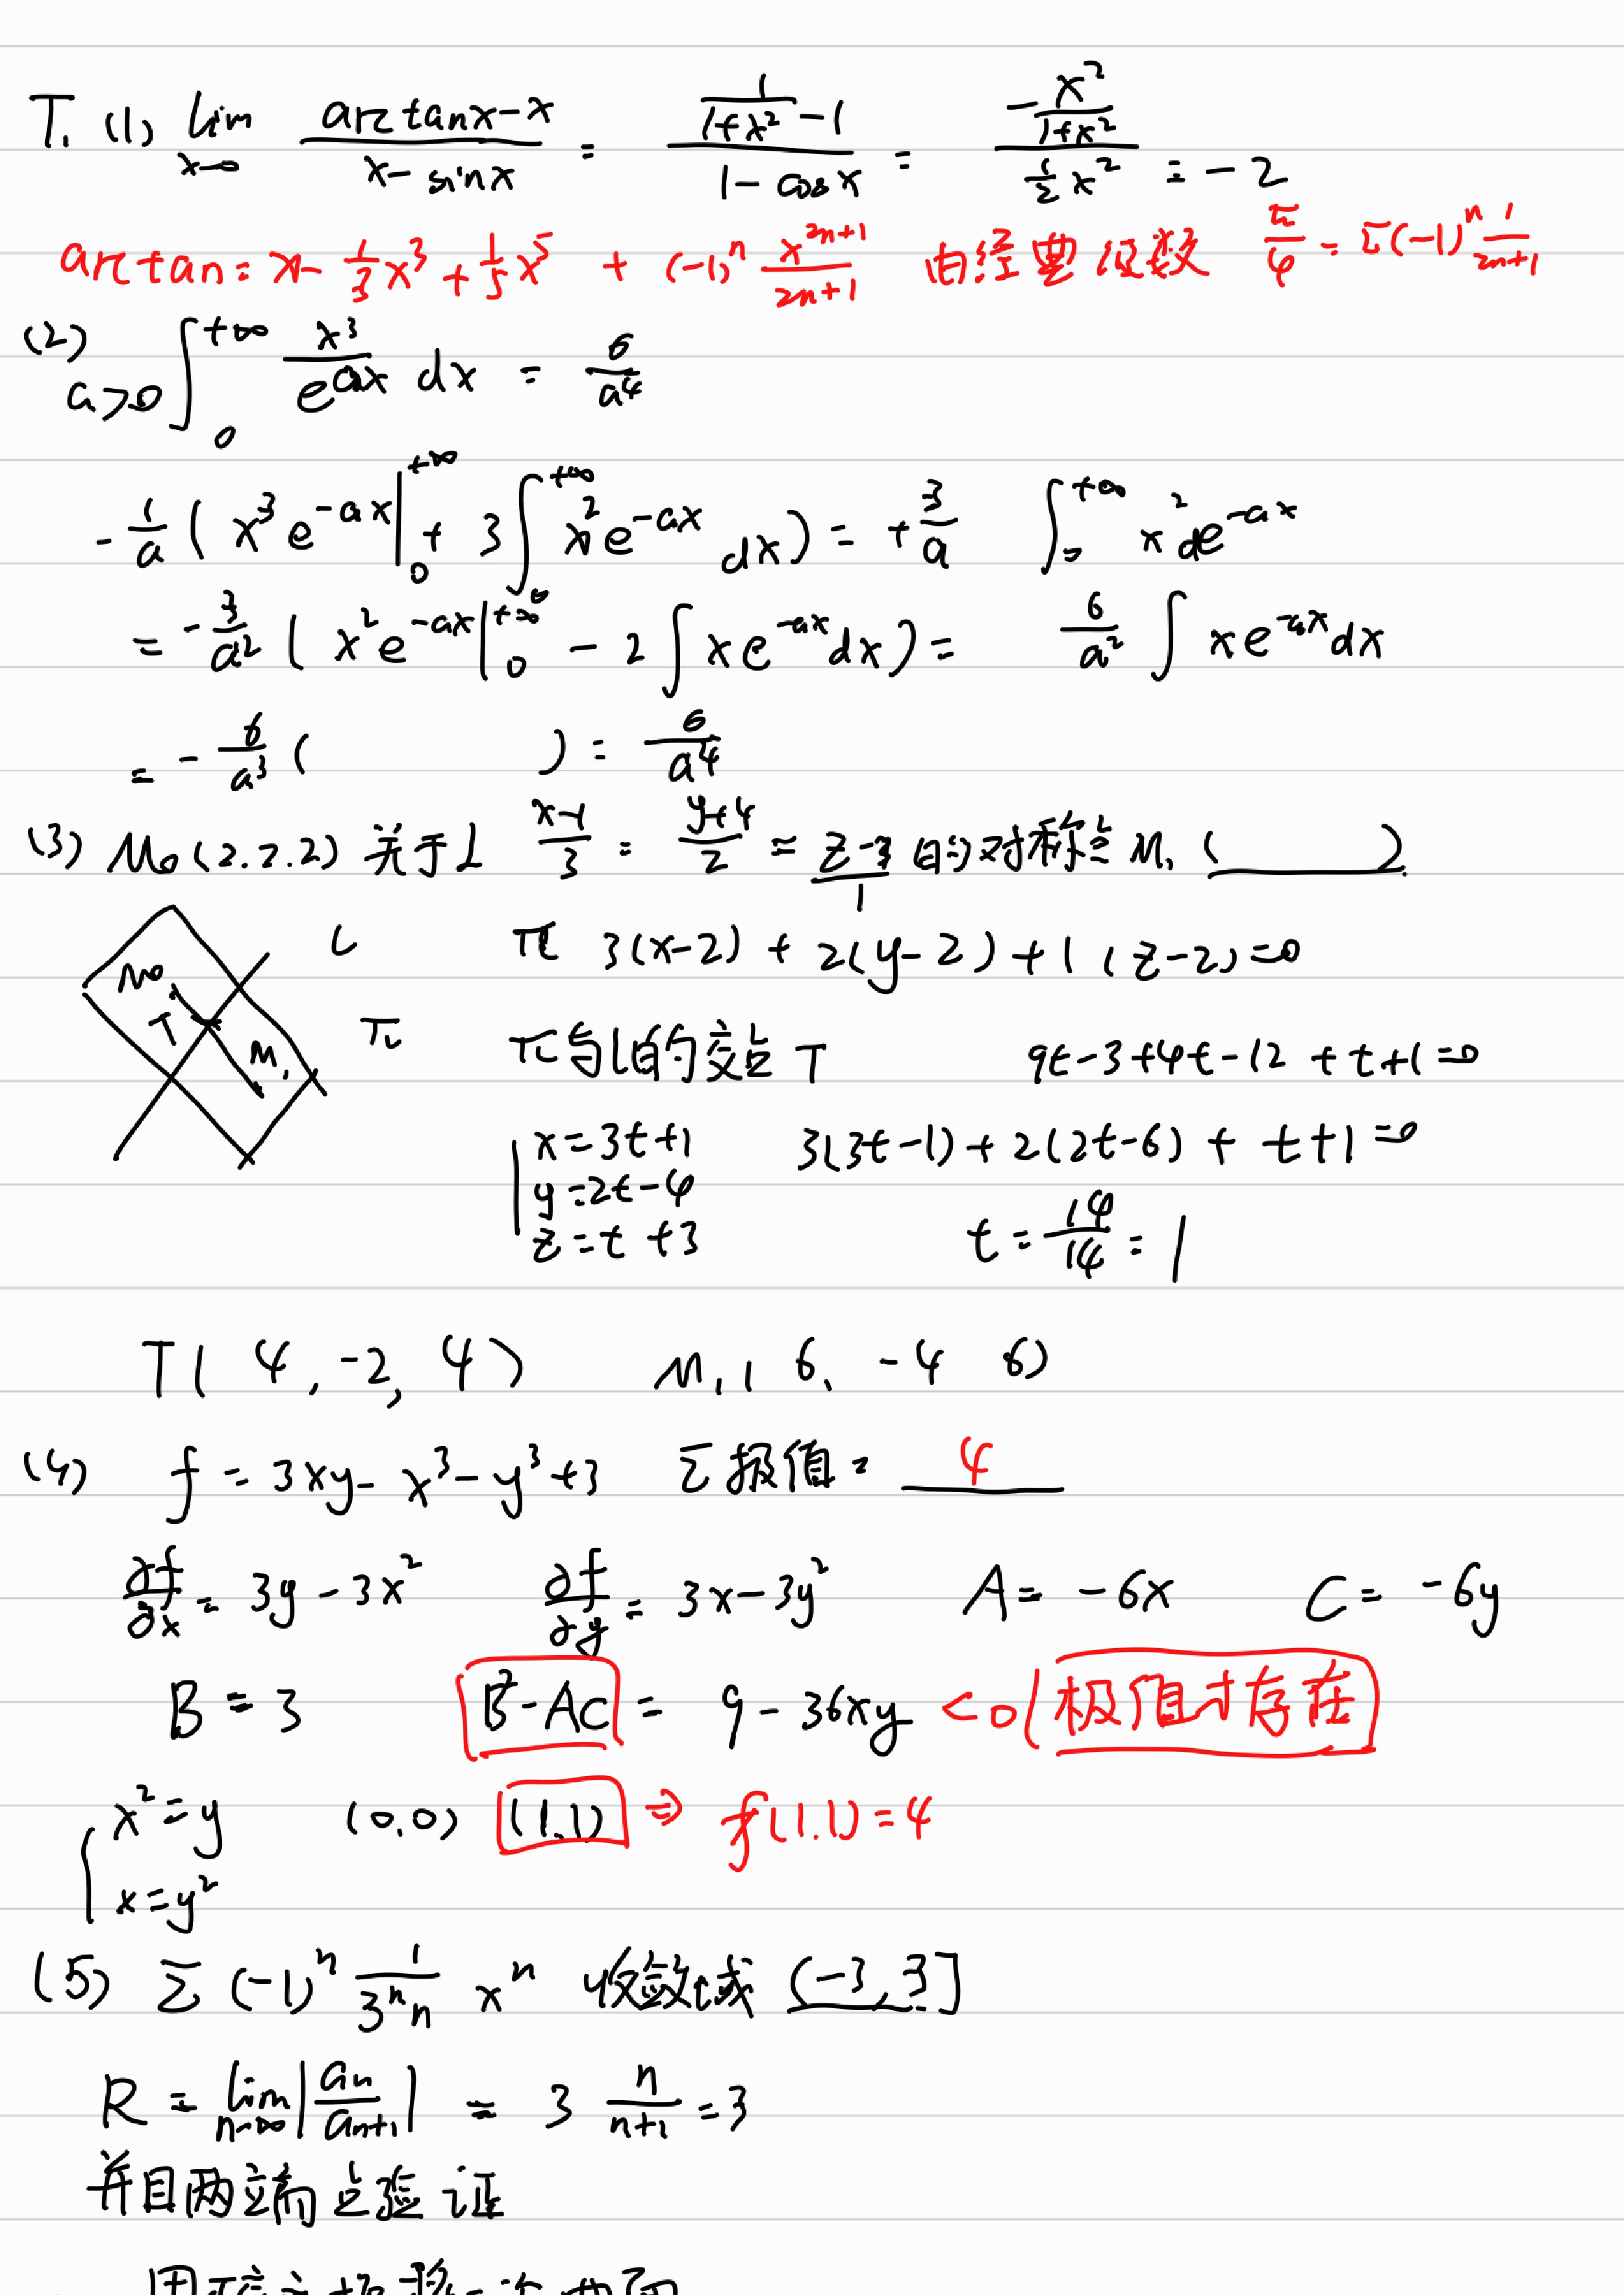 T. (1) lim x→0 (arctanx−x)/(x−sinx) = (1/(1+x²) −1)/(1−cosx) = (−x²/(1+x²))/(½x²) = −2
arctan = x−⅓x³+⅕x⁵ + (−1)ⁿ x²ⁿ⁺¹/(2n+1) 由经典级数 π/4 = Σ(−1)ⁿ 1/(2n+1)
(2) a>0 ∫₀^{+∞} x³/e^{ax} dx = 6/a⁴
−1/a ( x³e^{−ax}|₀^{+∞} + 3∫₀^{+∞} x²e^{−ax} dx ) = +3/a ∫₀^{+∞} x²de^{−ax}
= −3/a² ( x²e^{−ax}|₀^{+∞} − 2∫xe^{−ax}dx ) = 6/a² ∫xe^{−ax}dx
= −6/a³ ( ) = 6/a⁴
(3) M₀(2.2.2) 关于L (x−1)/3 = (y+4)/2 = (z−3)/1 的对称点 M₁ ( )
M₀ T M₁ L π
π 3(x−2) + 2(y−2) + 1(z−2)=0
π与L的交点 T 9t−3+4t−12+t+1=0
x=3t+1 3(3t−1)+2(2t−6)+t+1=0
y=2t−4
z=t+3 t=14/14=1
T( 4,−2,4) M₁( 6, −4 6)
(4) f = 3xy−x³−y³+3 Σ极值= 4
∂f/∂x = 3y−3x² ∂f/∂y = 3x−3y² A=−6x C=−6y
B=3 B²−AC = 9−36xy <0 极值才存在
x²=y (0.0) (1.1) ⇒ f(1.1)=4
x=y²
(5) Σ(−1)ⁿ 1/(3ⁿn) xⁿ 收敛域 (−3,3]
R = lim n→∞ |aₙ/aₙ₊₁| = 3 n/(n+1) =3
并且两端点验证